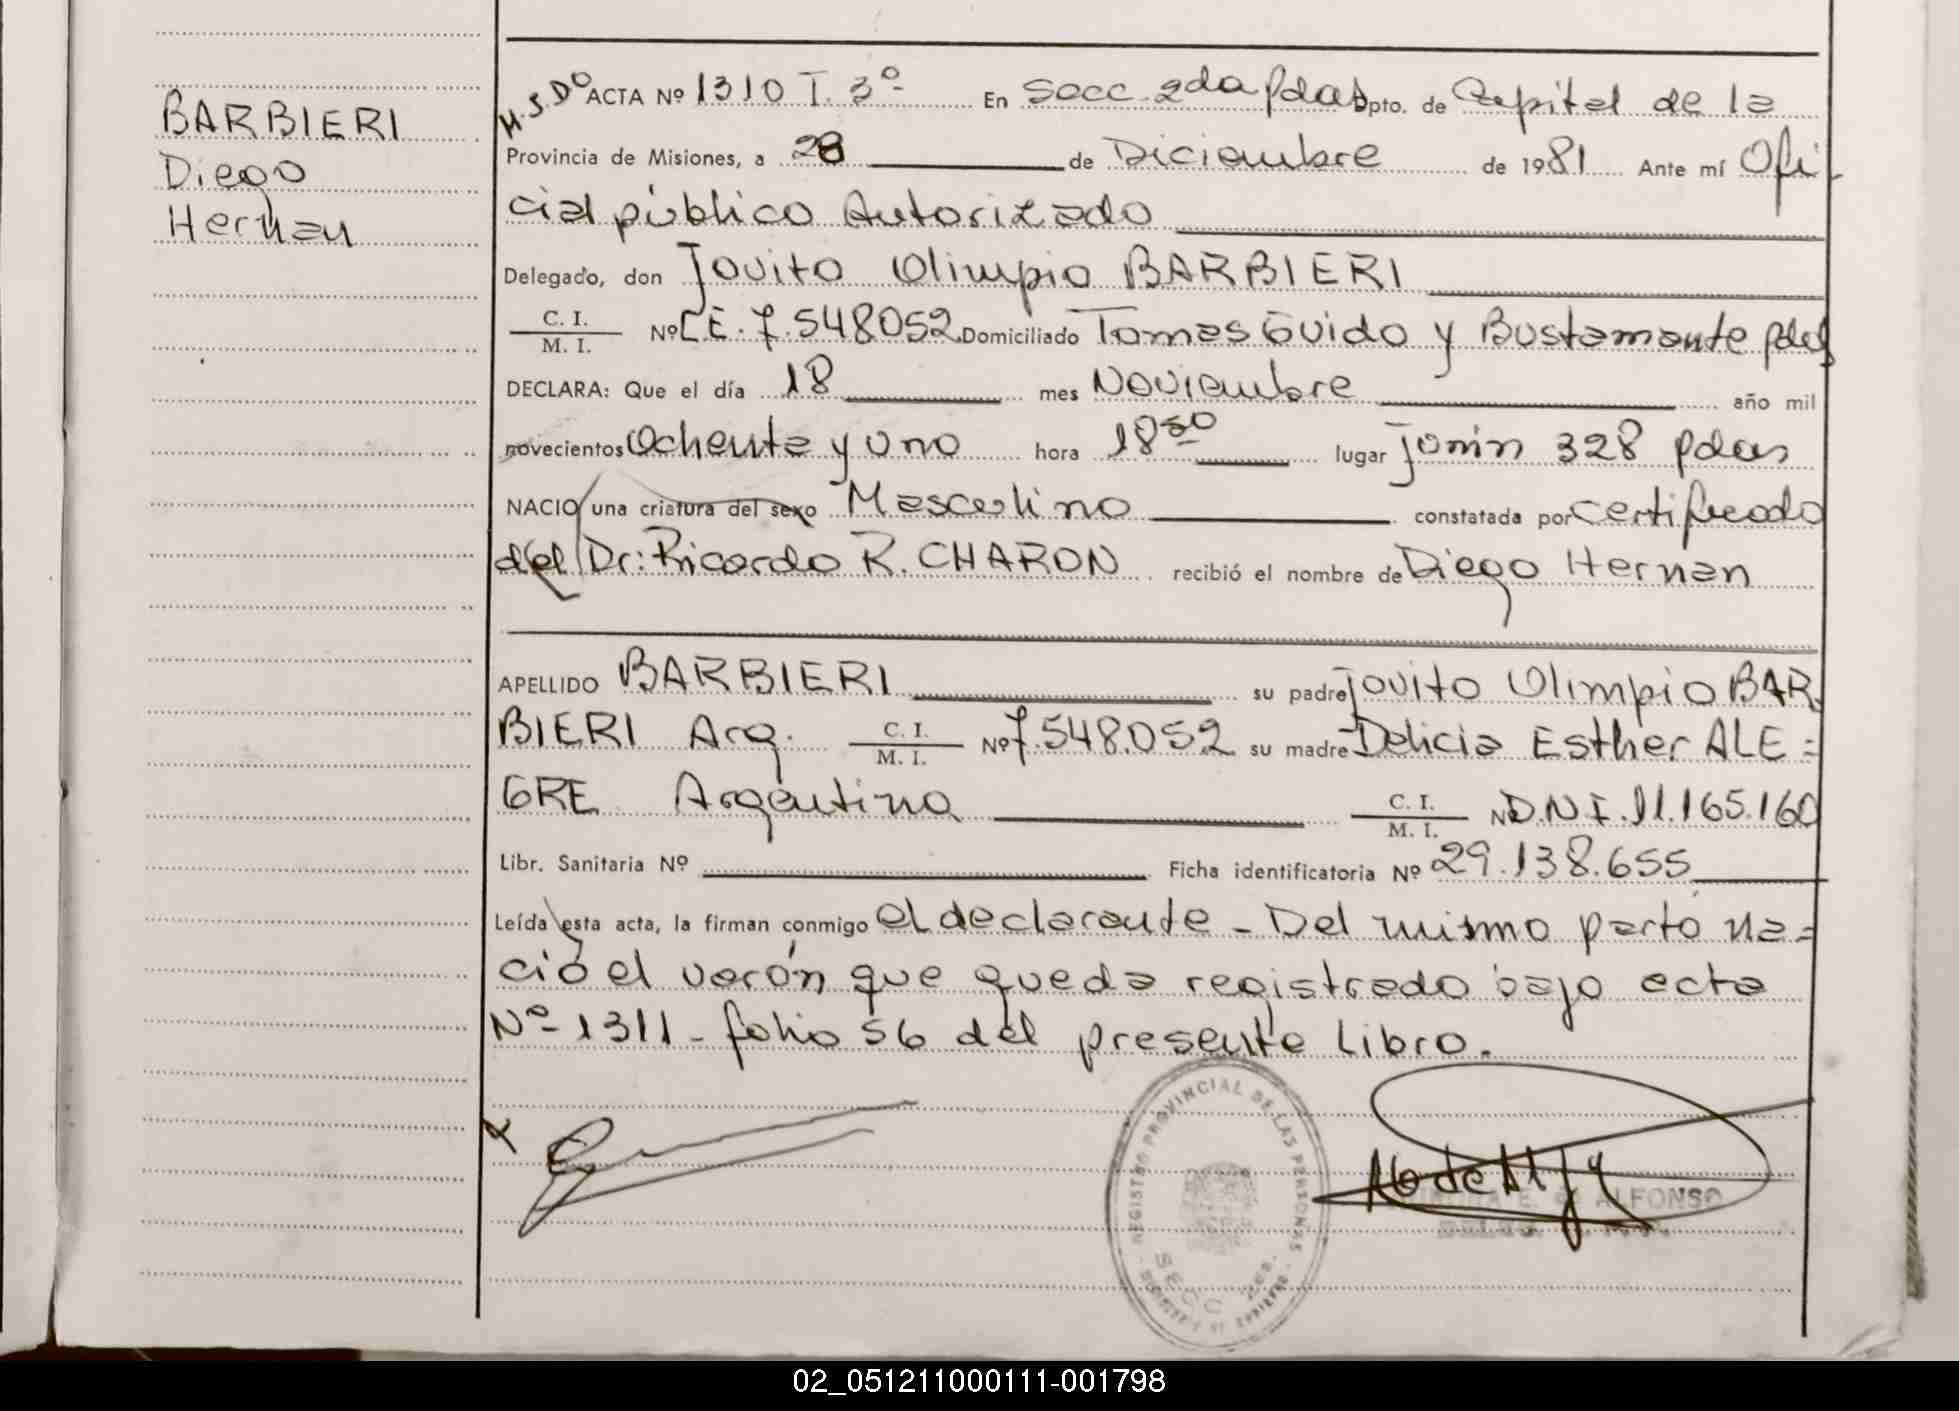 BARBIERI
Diego
Hernan
H.S.Dº ACTA Nº 1310 T. 3º En Secc. 2da Pdas Dpto. de Capital de la
Provincia de Misiones, a 28 de Diciembre de 1981 Ante mí Ofi
cial público Autorizado
Delegado, don Jovito Olimpio BARBIERI
C. I.
M. I. Nº L.E. 7.548052 Domiciliado Tomas Guido y Bustamante Pdas
DECLARA: Que el día 18 mes Noviembre año mil
novecientos Ochenta y uno hora 18 30 lugar Junin 328 Pdas
NACIO una criatura del sexo Masculino constatada por certificado
del Dr: Ricardo R. CHARON recibió el nombre de Diego Hernan
APELLIDO BARBIERI su padre Jovito Olimpio BAR
BIERI Arg. C. I.
M. I. Nº 7.548.052 su madre Delicia Esther ALE=
GRE Argentina C. I.
M. I. Nº D.N.I. 11.165.160
Libr. Sanitaria Nº Ficha identificatoria Nº 29.138.655
Leída esta acta, la firman conmigo el declarante - Del mismo parto na=
ció el varón que queda registrado bajo acta
Nº 1311 - folio 56 del presente Libro.
REGISTRO PROVINCIAL DE LAS PERSONAS
SECC
E. de ALFONSO
02_051211000111-001798